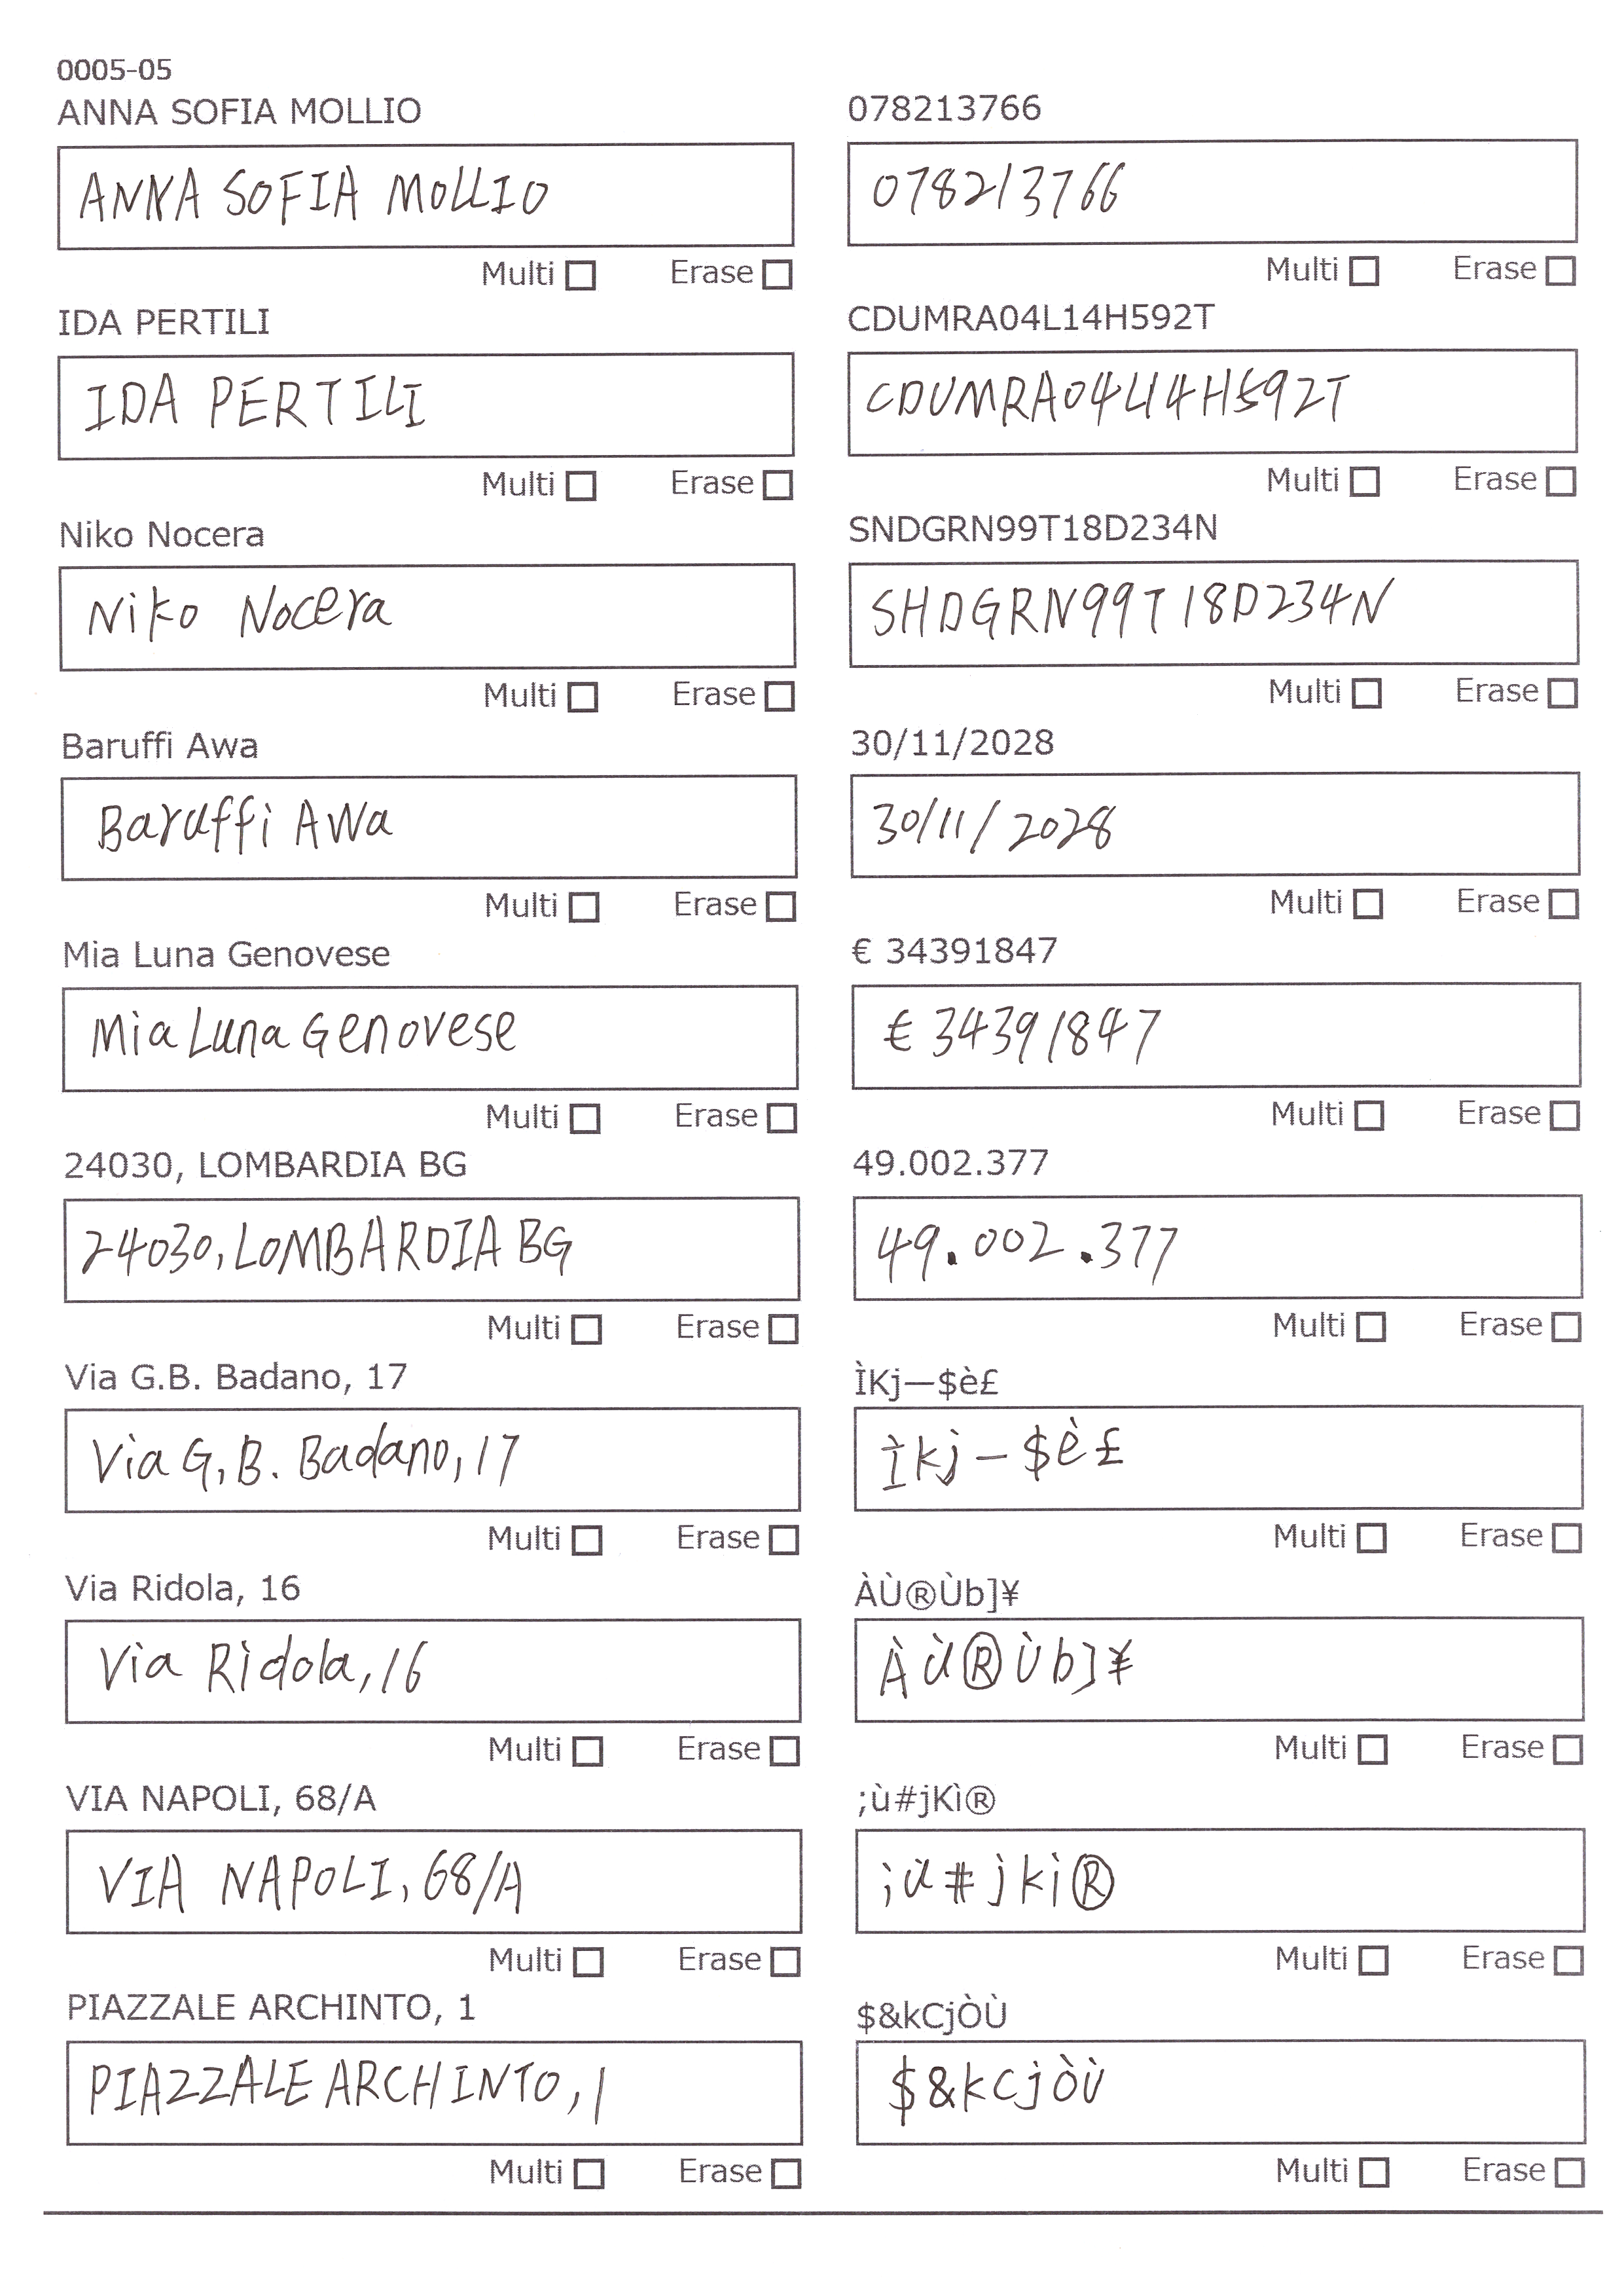 0005-05
ANNA SOFIA MOLLIO
ANNA SOFIA MOLLIO
Multi Erase
IDA PERTILI
IDA PERTILI
Multi Erase
Niko Nocera
Niko Nocera
Multi Erase
Baruffi Awa
Baruffi Awa
Multi Erase
Mia Luna Genovese
Mia Luna Genovese
Multi Erase
24030, LOMBARDIA BG
24030, LOMBARDIA BG
Multi Erase
Via G.B. Badano, 17
Via G,B. Badano, 17
Multi Erase
Via Ridola, 16
Via Ridola, 16
Multi Erase
VIA NAPOLI, 68/A
VIA NAPOLI, 68/A
Multi Erase
PIAZZALE ARCHINTO, 1
PIAZZALE ARCHINTO, 1
Multi Erase
078213766
078213766
Multi Erase
CDUMRA04L14H592T
CDUMRA04L14H592T
Multi Erase
SNDGRN99T18D234N
SHDGRN99T18D234N
Multi Erase
30/11/2028
30/11/2028
Multi Erase
€ 34391847
€ 34391847
Multi Erase
49.002.377
49.002.377
Multi Erase
ÌKj—$è£
Ìkj—$è£
Multi Erase
ÀÙ®Ùb]¥
Àù®Ùb]¥
Multi Erase
;ù#jKì®
;ù#jkì®
Multi Erase
$&kCjÒÙ
$&kCjÒÙ
Multi Erase